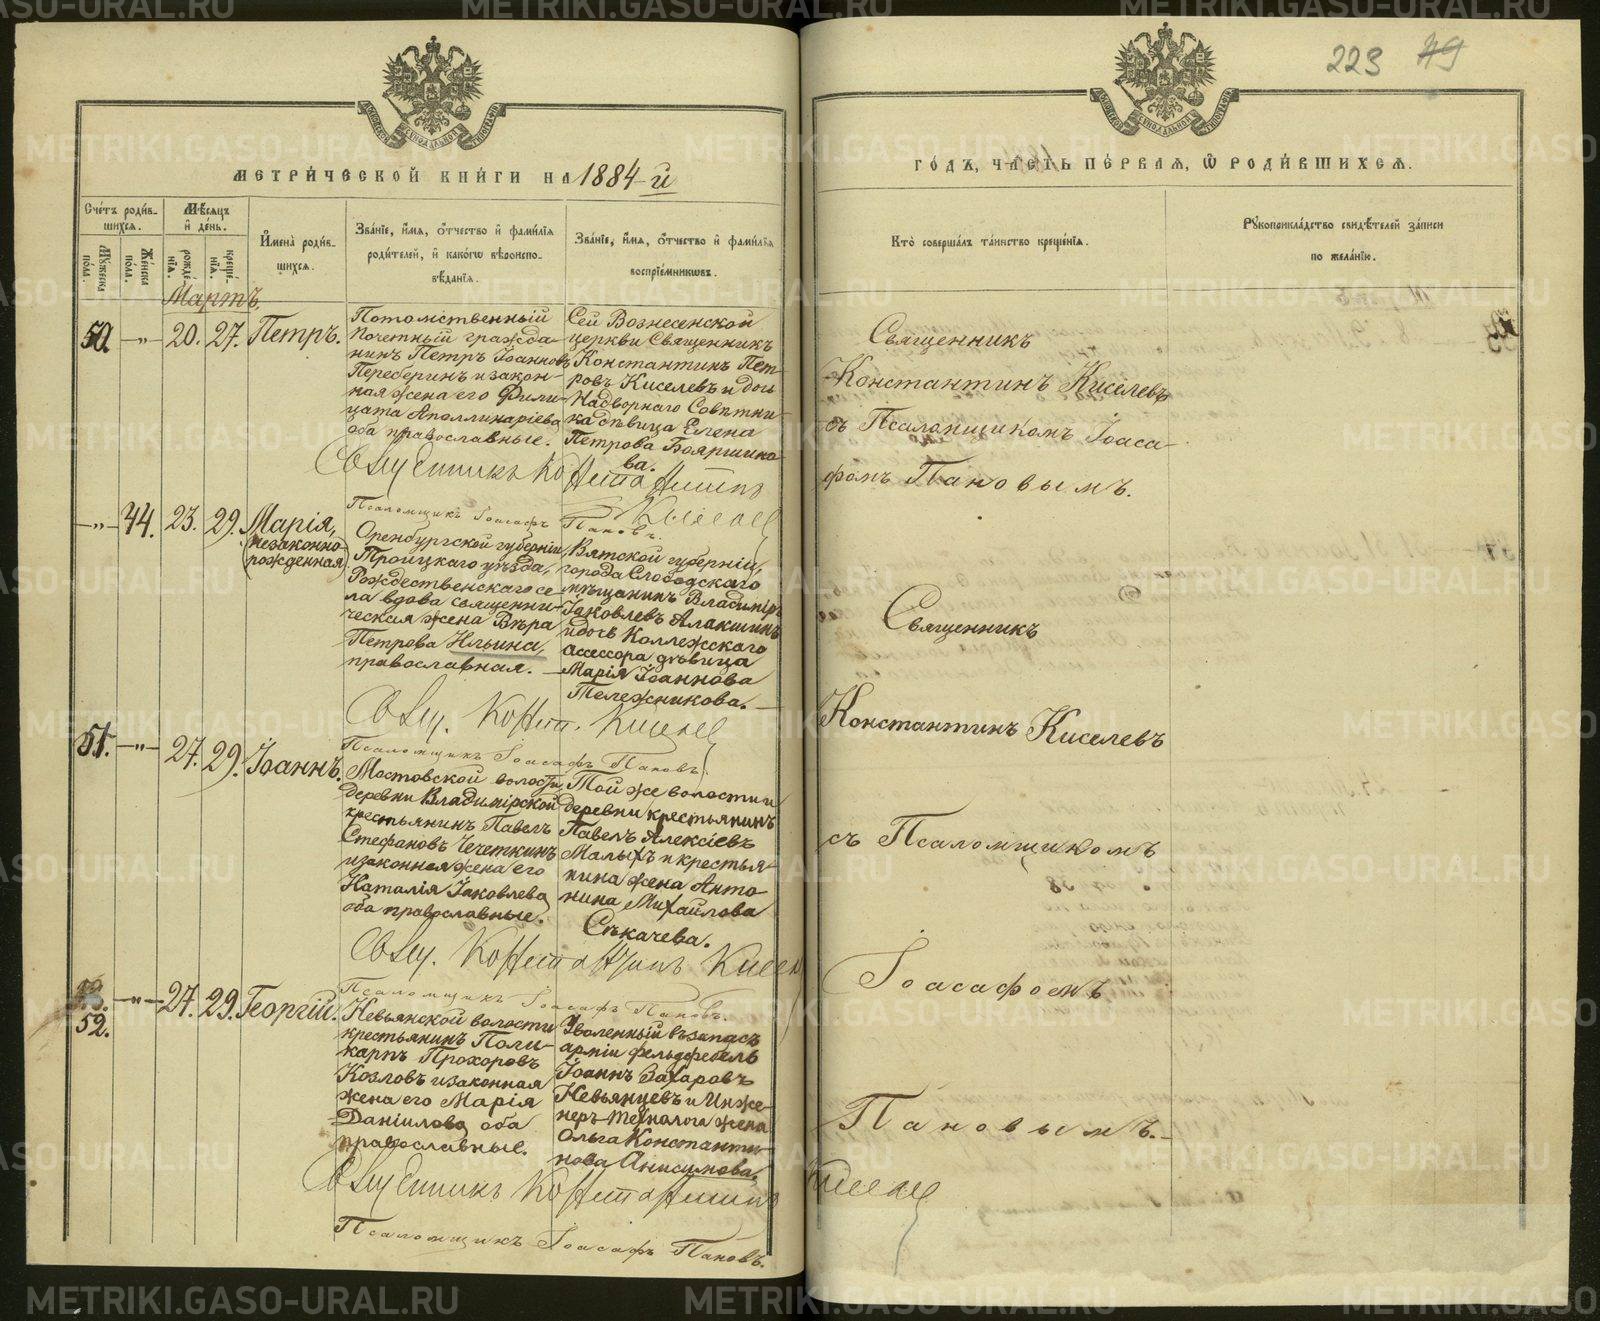 223 49
МЕТРИ́ЧЕСКОЙ КНИ́ГИ НА 1884-й
ГО́ДЪ, ЧА́СТЬ ПЕ́РВАЯ, Ѡ҆ РОДИ́ВШИХСЯ.
Сче́тъ роди́в-
шихся.
Мꙋжеска по́ла.
Же́нска по́ла.
Мѣ́сяцъ
и҆ де́нь.
рожде́-
нїѧ.
креще́-
нїѧ.
И҆мена̀ роди́в-
шихся.
Зва́нїе, и҆́мѧ, ѻ҆́тчество и҆ фами́лїѧ
роди́телей, и҆ како́гѡ вѣроиспо-
вѣ́данїѧ.
Зва́нїе, и҆́мѧ, ѻ҆́тчество и҆ фами́лїѧ
воспрїе́мникѡвъ.
Кто̀ соверша́лъ та́инство креще́нїѧ.
Рꙋкоприкла́дство свидѣ́телей за́писи
по жела́нїю.
Мартъ
50. —"— 20. 27. Петръ.
Потомственный
Почетный гражда-
нинъ Петръ Іоанновъ
Переберинъ и закон-
ная жена его Фили-
цата Аполлинаріева
оба православные.
Сей Вознесенской
церкви Священникъ
Константинъ Пет-
ровъ Киселевъ и дочь
Надворнаго Совѣтни-
ка дѣвица Елена
Петрова Бояршино-
ва.
Священникъ Константинъ
Киселев
Псаломщикъ Іоасафъ Пановъ.
—"— 44. 23. 29. Марія,
(незаконно-
рожденная)
Оренбургской губерніи,
Троицкаго уѣзда,
Рождественскаго се-
ла вдова священни-
ческая жена Вѣра
Петрова Ильина,
православная.
Вятской губерніи,
города Слободскаго
мѣщанинъ Владиміръ
Іаковлевъ Алакшинъ
и дочь Коллежскаго
Ассесора дѣвица
Марія Іоаннова
Тележникова.
Свящ. Конст. Киселев
Псаломщикъ Іоасафъ Пановъ.
51. —"— 27. 29. Іоаннъ.
Мостовской волости,
деревни Владимірской
крестьянинъ Павелъ
Стефановъ Чечеткинъ
и законная жена его
Наталія Іаковлева
оба православные.
Той же волости и
деревни крестьянинъ
Павелъ Алексіевъ
Малыхъ и крестья-
нина жена Анто-
нина Михайлова
Сѣкачева.
Свящ. Константинъ Киселев
Псаломщикъ Іоасафъ Пановъ.
52. —"— 27. 29. Георгій.
Невьянской волости
крестьянинъ Поли-
карпъ Прохоровъ
Козловъ и законная
жена его Марія
Даніилова оба
православные.
Уволенный въ запасъ
арміи фельдфебель
Іоаннъ Захаровъ
Невьянцевъ и Инже-
неръ-технолога жена
Ольга Константи-
нова Анисимова.
Священникъ Константинъ Киселев
Псаломщикъ Іоасафъ Пановъ.
Священникъ
Константинъ Киселевъ
съ Псаломщикомъ Іоаса-
фомъ Пановымъ.
Священникъ
Константинъ Киселевъ
съ Псаломщикомъ
Іоасафомъ
Пановымъ.
METRIKI.GASO-URAL.RU